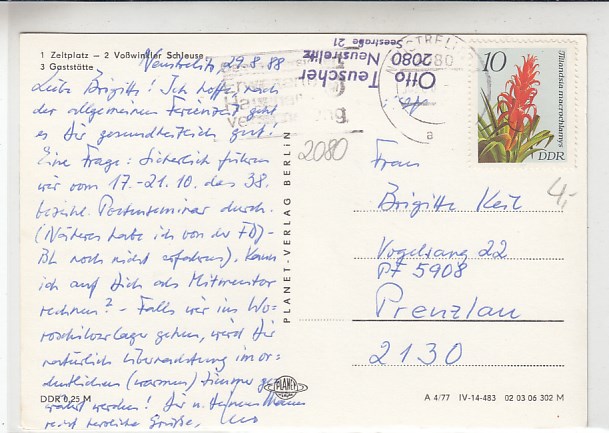 1 Zeltplatz – 2 Voßwinkler Schleuse
3 Gaststätte
Neustrelitz 29.8.88
Liebe Brigitte! Ich hoffe, nach
der allgemeinen Ferienzeit geht
es Dir gesundheitlich gut!
Eine Frage: Sicherlich führen
wir vom 17.-21.10. das 38.
bezirkl. Poetenseminar durch.
(Näheres habe ich von der FDJ-
BL noch nicht erfahren). Kann
ich auf Dich als Mitmentor
rechnen? - Falls wir ins Wo-
roschilowlager gehen, wird Dir
natürlich Übernachtung im or-
dentlichen (warmen) Zimmer ge-
währt werden! Dir u. Deinem Mann
recht herzliche Grüße,
DDR 0,25 M
PLANET-VERLAG BERLIN
PLANET
2080
Otto
Teuscher
2080 Neustrelitz
Seestraße 21
10
Tillandsia macrochlamys
DDR
a
4,-
Frau
Brigitte Keil
Vogelsang 22
PF 5908
Prenzlau
2130
A 4/77 IV-14-483 02 03 06 302 M